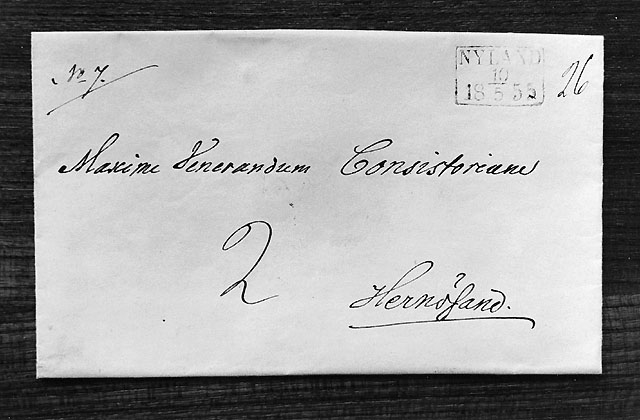 No 7.
NYLAND
10
18 5 55
26
Maxime Venerandum Consistorium
2
Hernösand.